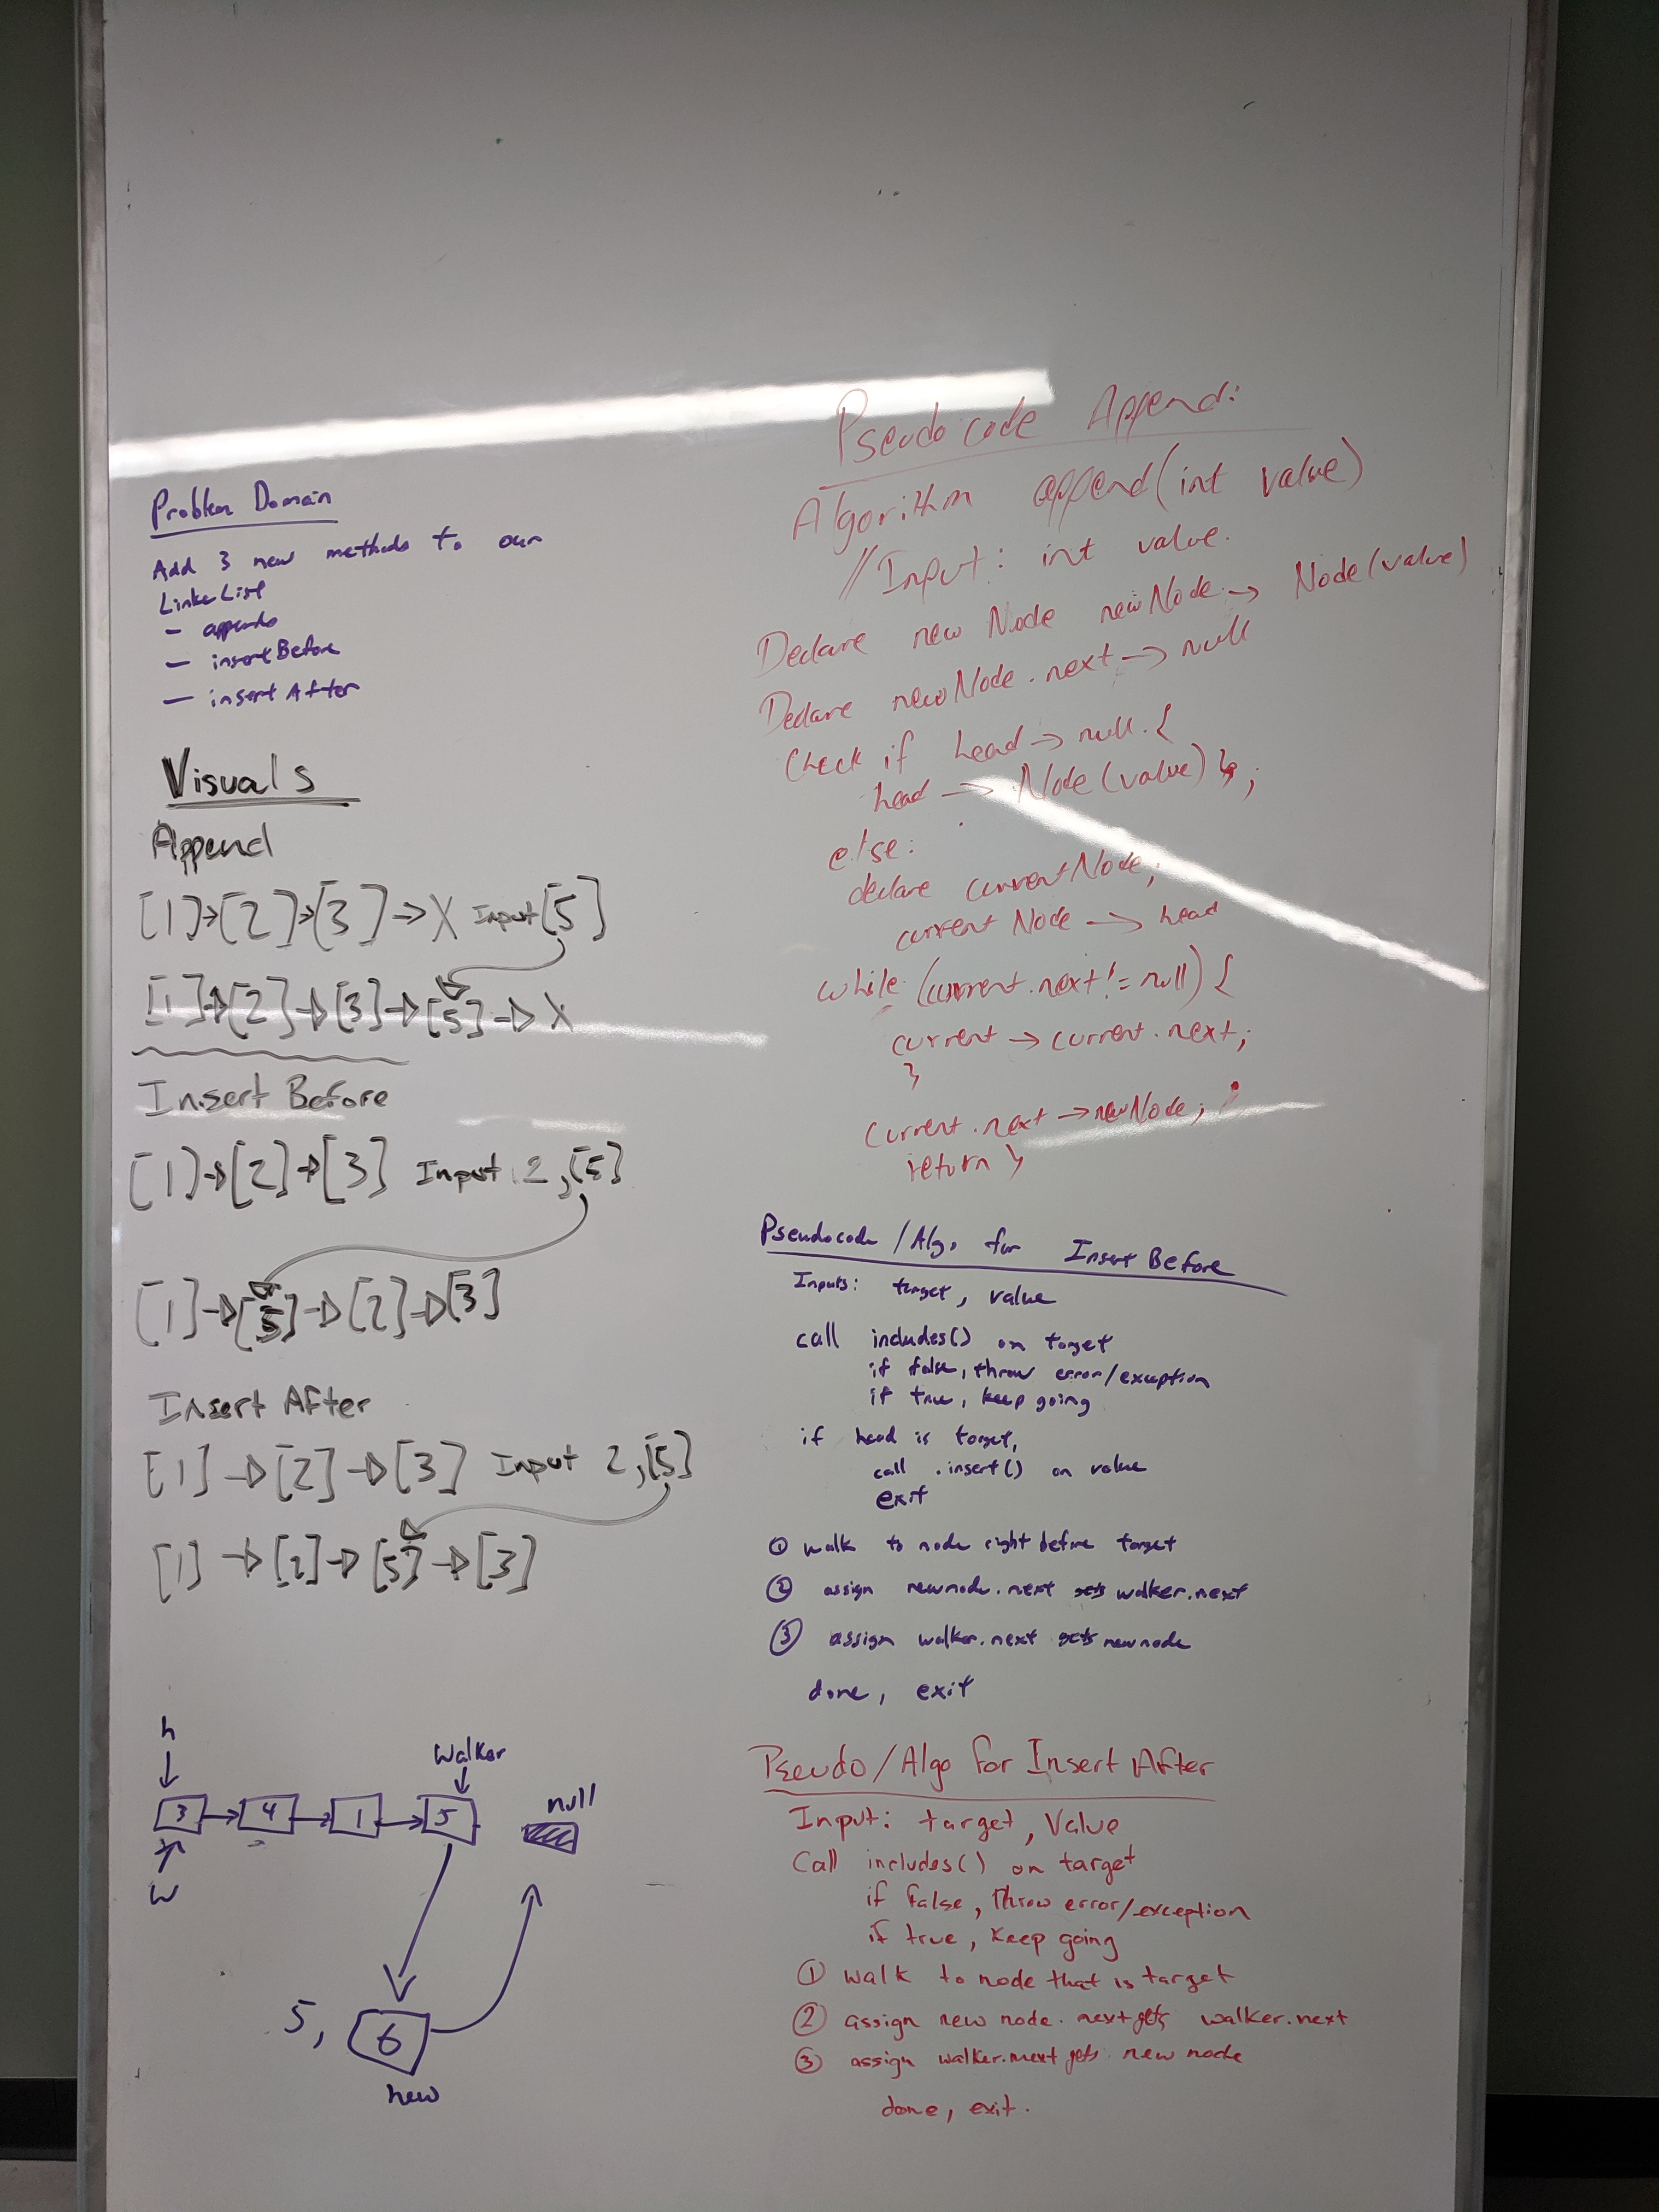 Problem Domain
Add 3 new methods to our
Linke List
- append
- insertBefore
- insert After
Visuals
Append
[1]→[2]→[3]→X Input [5]
[1]→[2]→[3]→[5]→X
Insert Before
[1]→[2]→[3] Input 2,[5]
[1]→[5]→[2]→[3]
Insert After
[1]→[2]→[3] Input 2,[5]
[1]→[2]→[5]→[3]
h
walker
3 4 1 5 null
w
5, 6
new
Pseudocode Append:
Algorithm append(int value)
//Input: int value.
Declare new Node newNode → Node(value)
Declare newNode.next → null
Check if head → null {
head → Node(value) };
else:
declare currentNode;
current Node → head
while (current.next != null) {
current → current.next;
}
current.next → newNode;
return }
Pseudocode /Algo for Insert Before
Inputs: target, value
call includes() on target
if false, throw error/exception
if true, keep going
if head is target,
call .insert() on value
exit
① walk to node right before target
② assign newnode.next gets walker.next
③ assign walker.next gets newnode
done, exit
Pseudo/Algo for Insert After
Input: target, Value
Call includes() on target
if false, throw error/exception
if true, keep going
① walk to node that is target
② assign new node.next gets walker.next
③ assign walker.next gets new node
done, exit.